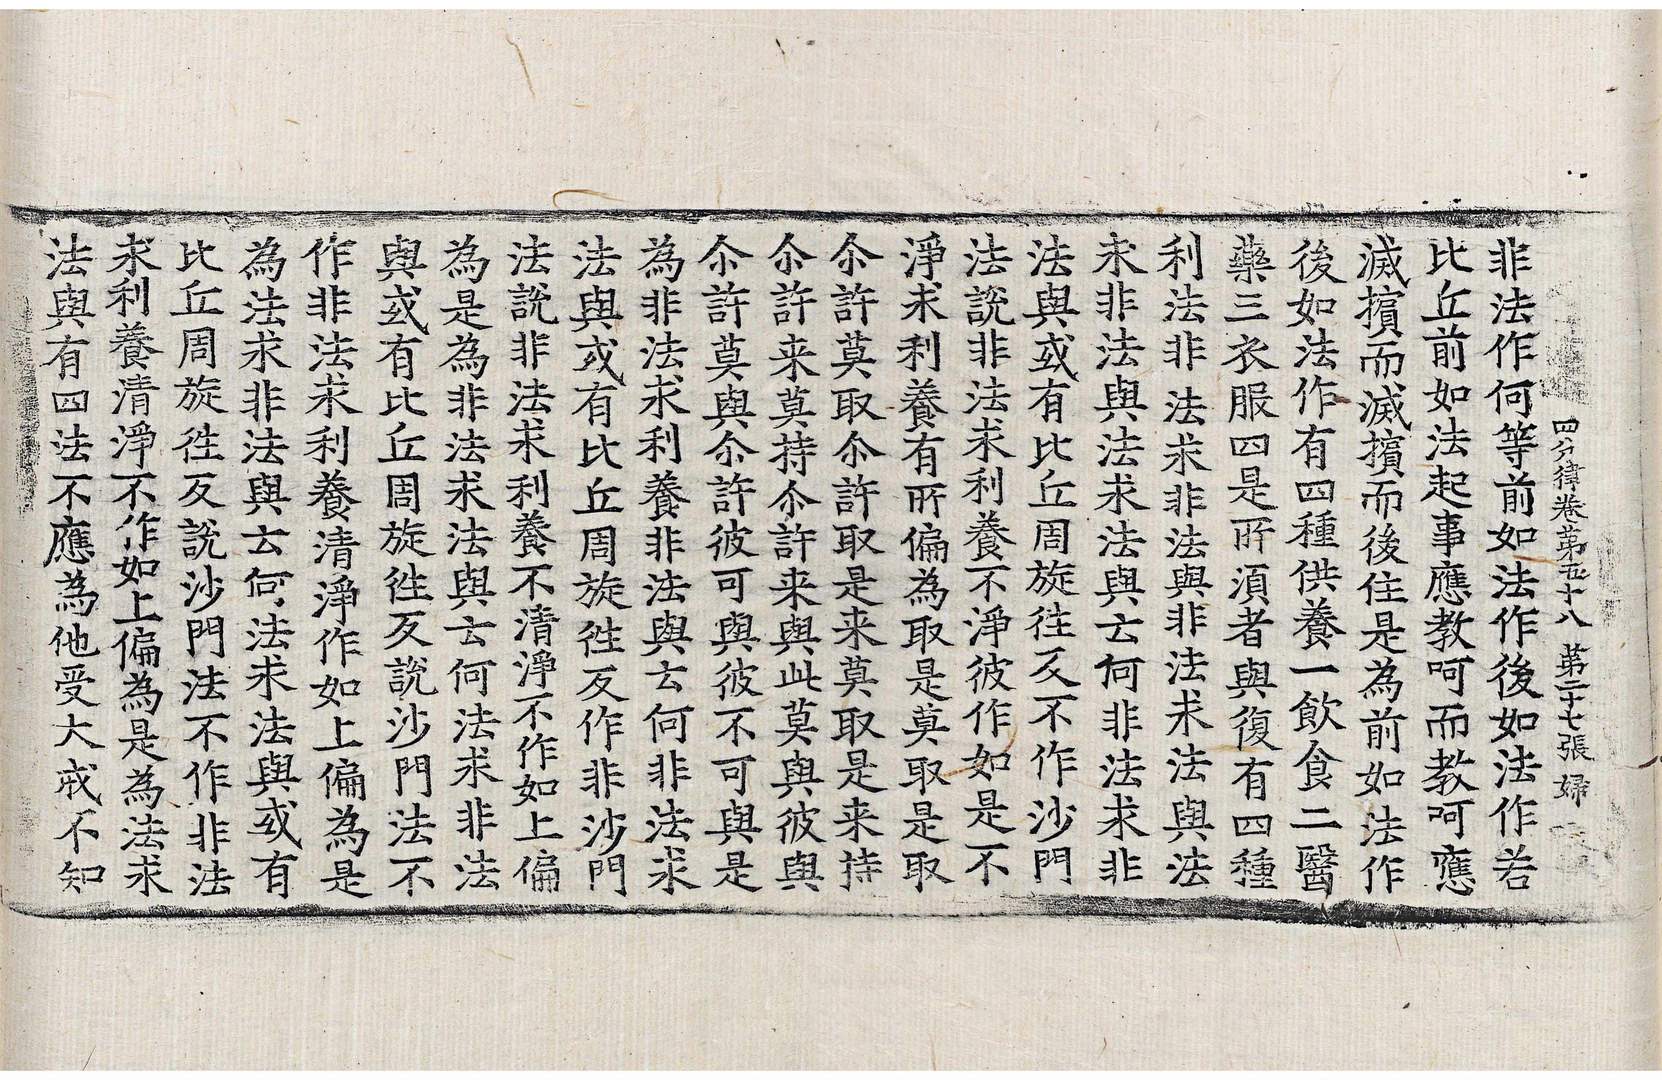 四分律卷第五十八 第二十七張 婦
非法作何等前如法作後如法作若
比丘前如法起事應教呵而教呵應
滅擯而滅擯而後住是為前如法作
後如法作有四種供養一飲食二醫
藥三衣服四是所須者與復有四種
利法非法求非法與非法求法與法
求非法與法求法與云何非法求非
法與或有比丘周旋往反不作沙門
法說非法求利養不淨彼作如是不
淨求利養有所偏為取是莫取是取
尒許莫取尒許取是来莫取是来持
尒許来莫持尒許来與此莫與彼與
尒許莫與尒許彼可與彼不可與是
為非法求利養非法與云何非法求
法與或有比丘周旋往反作非沙門
法說非法求利養不清淨不作如上偏
為是為非法求法與云何法求非法
與或有比丘周旋往反說沙門法不
作非法求利養清淨作如上偏為是
為法求非法與云何法求法與或有
比丘周旋往反說沙門法不作非法
求利養清淨不作如上偏為是為法求
法與有四法不應為他受大戒不知